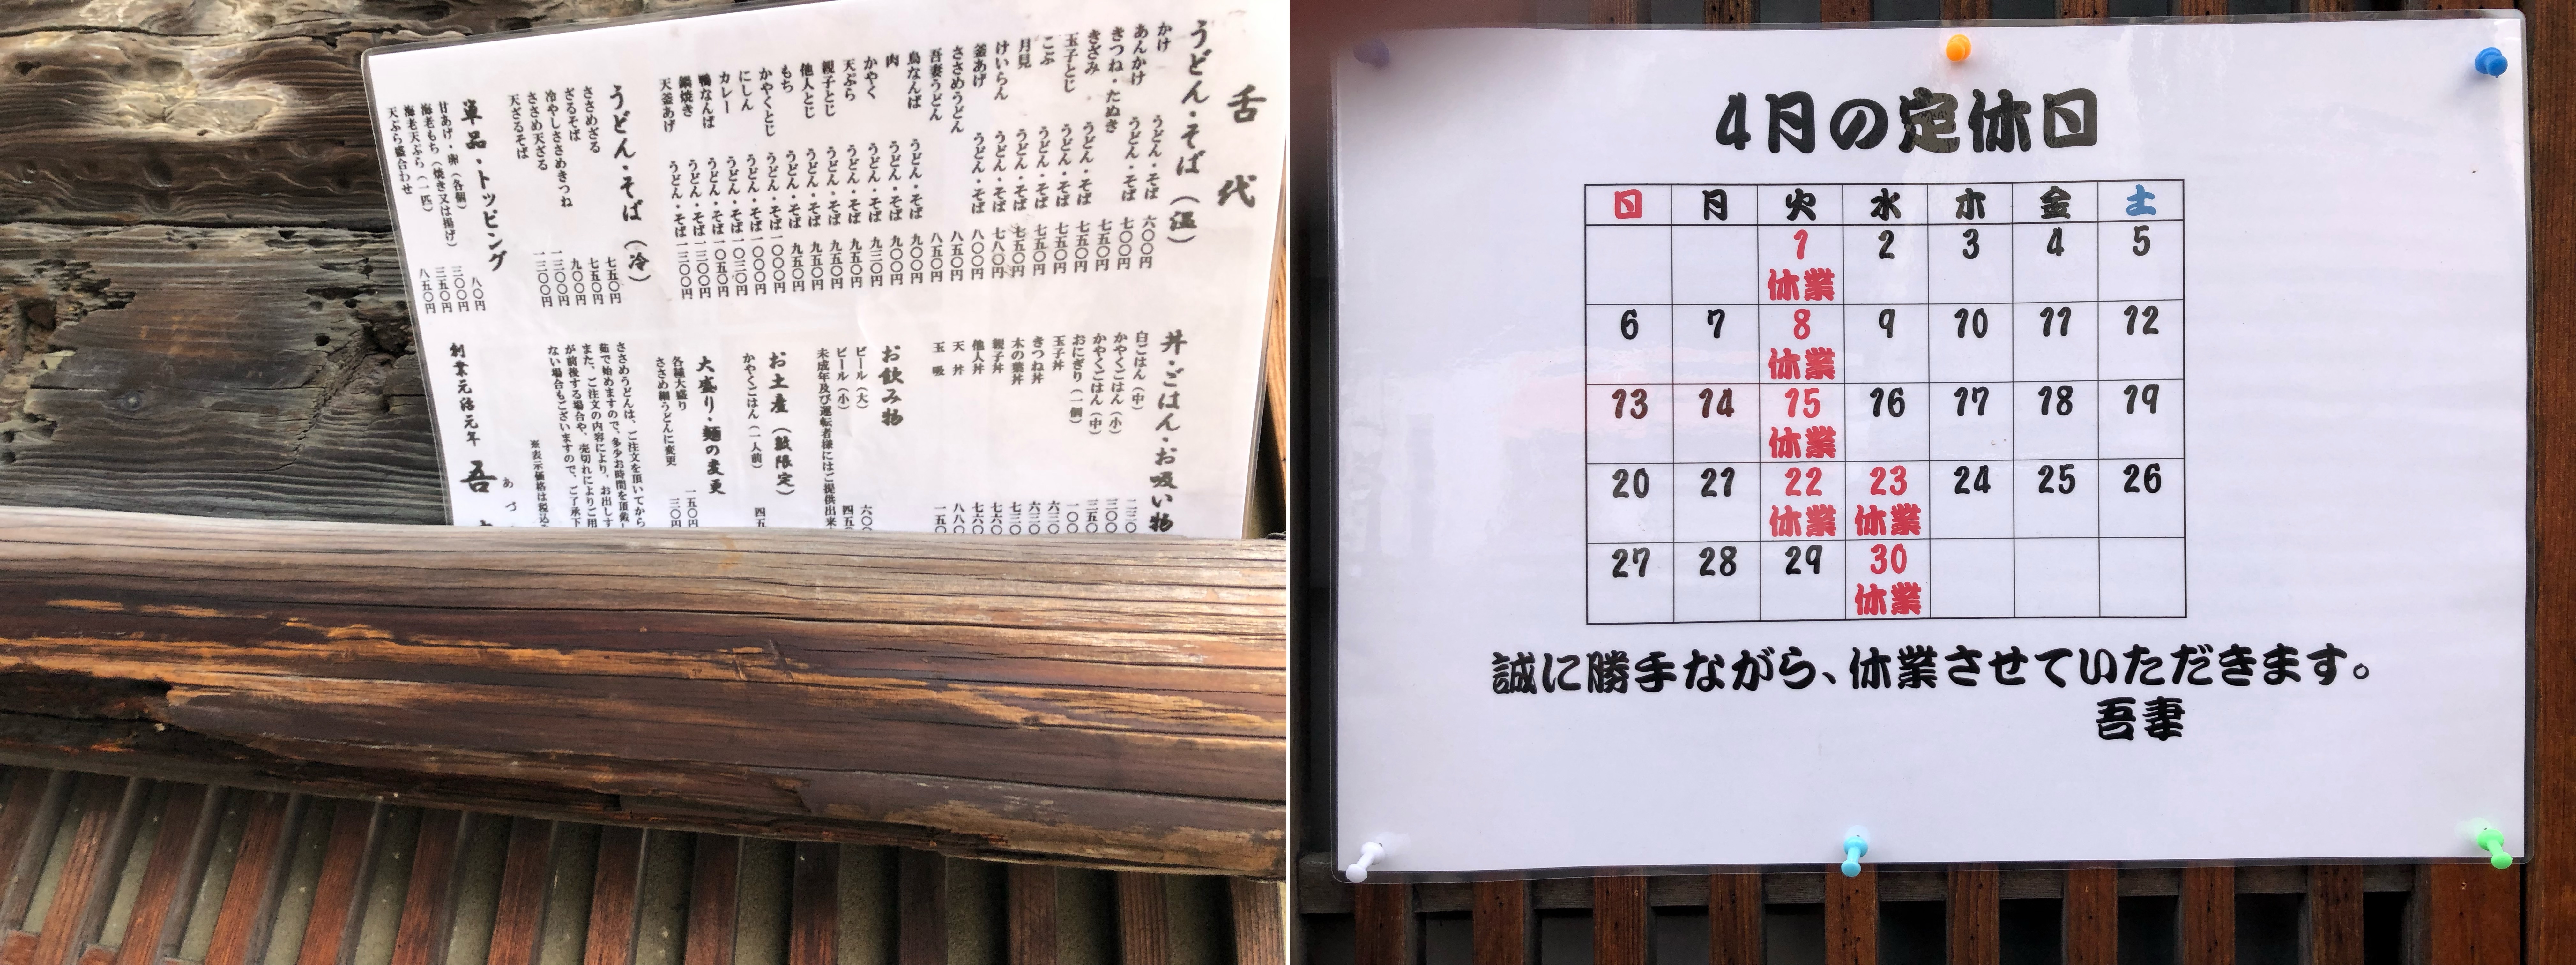 舌代
うどん・そば(温)
かけ うどん・そば 六〇〇円
あんかけ うどん・そば 七〇〇円
きつね・たぬき 七五〇円
きざみ うどん・そば 七五〇円
玉子とじ うどん・そば 七五〇円
こぶ うどん・そば 七五〇円
月見 うどん・そば 七五〇円
けいらん うどん・そば 七八〇円
釜あげ うどん・そば 八〇〇円
ささめうどん 八五〇円
吾妻うどん 八五〇円
鳥なんば うどん・そば 九〇〇円
肉 うどん・そば 九〇〇円
かやく うどん・そば 九三〇円
天ぷら うどん・そば 九五〇円
親子とじ うどん・そば 九五〇円
他人とじ うどん・そば 九五〇円
もち うどん・そば 九五〇円
かやくとじ うどん・そば 一〇〇〇円
にしん うどん・そば 一〇〇〇円
カレー うどん・そば 一〇三〇円
鴨なんば うどん・そば 一〇五〇円
鍋焼き うどん・そば 一三〇〇円
天釜あげ うどん・そば 一三〇〇円
うどん・そば(冷)
ささめざる 七五〇円
ざるそば 七五〇円
冷やしささめきつね 九〇〇円
ささめ天ざる 一三〇〇円
天ざるそば 一三〇〇円
単品・トッピング
甘あげ・卵(各個) 八〇円
海老もち(焼き又は揚げ) 三〇〇円
海老天ぷら(一匹) 三五〇円
天ぷら盛合わせ 八五〇円
丼・ごはん・お吸い物
白ごはん(中) 二三〇
かやくごはん(小) 三〇〇
かやくごはん(中) 三五〇
おにぎり(一個) 一〇〇
玉子丼 六三〇
きつね丼 六三〇
木の葉丼 七三〇
親子丼 七六〇
他人丼 七六〇
天丼 八八〇
玉吸 一五〇
お飲み物
ビール(大) 六〇〇
ビール(小) 四五〇
未成年及び運転者様にはご提供出来
お土産(数限定)
かやくごはん(一人前) 四五
大盛り・麺の変更
各種大盛り 一五〇円
ささめ細うどんに変更 三〇円
ささめうどんは、ご注文を頂いてから
茹で始めますので、多少お時間を頂戴し
また、ご注文の内容により、お出しす
が前後する場合や、売切れによりご用
ない場合もございますので、ご了承下
※表示価格は税込
創業元治元年 吾
あづ
4月の定休日
日 月 火 水 木 金 土
1 2 3 4 5
休業
6 7 8 9 10 11 12
休業
13 14 15 16 17 18 19
休業
20 21 22 23 24 25 26
休業 休業
27 28 29 30
休業
誠に勝手ながら、休業させていただきます。
吾妻